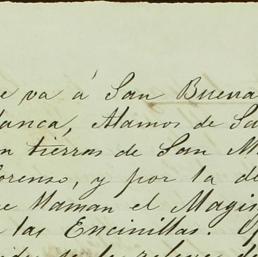 e va á San Buena
lanca, Alamos de Sa
n tierras de San M
orenso, y por la de
e llaman el Magis
a las Encinillas.